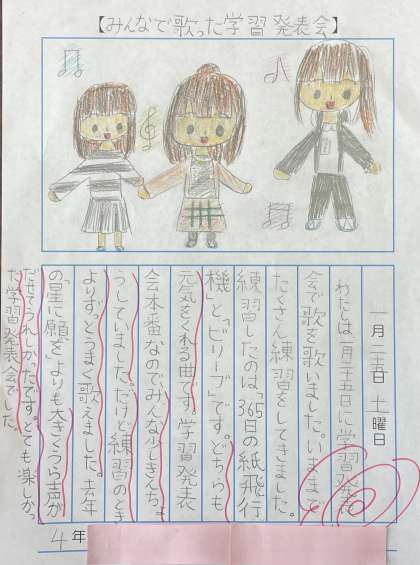 【みんなで歌った学習発表会】
一月二十五日 土曜日
わたしは一月二十五日に学習発表
会で歌を歌いました。いままで
たくさん練習をしてきました。
練習したのは「365日の紙飛行
機」と、「ビリーブ」です。どちらも
元気をくれる曲です。学習発表
会本番なので、みんな少しきんちょ
うしていました。だけど練習のとき
よりずっとうまく歌えました。去年
の「星に願いを」よりも大きくうら声が
だせてうれしかったです。とても楽しかっ
た学習発表会でした。
4年